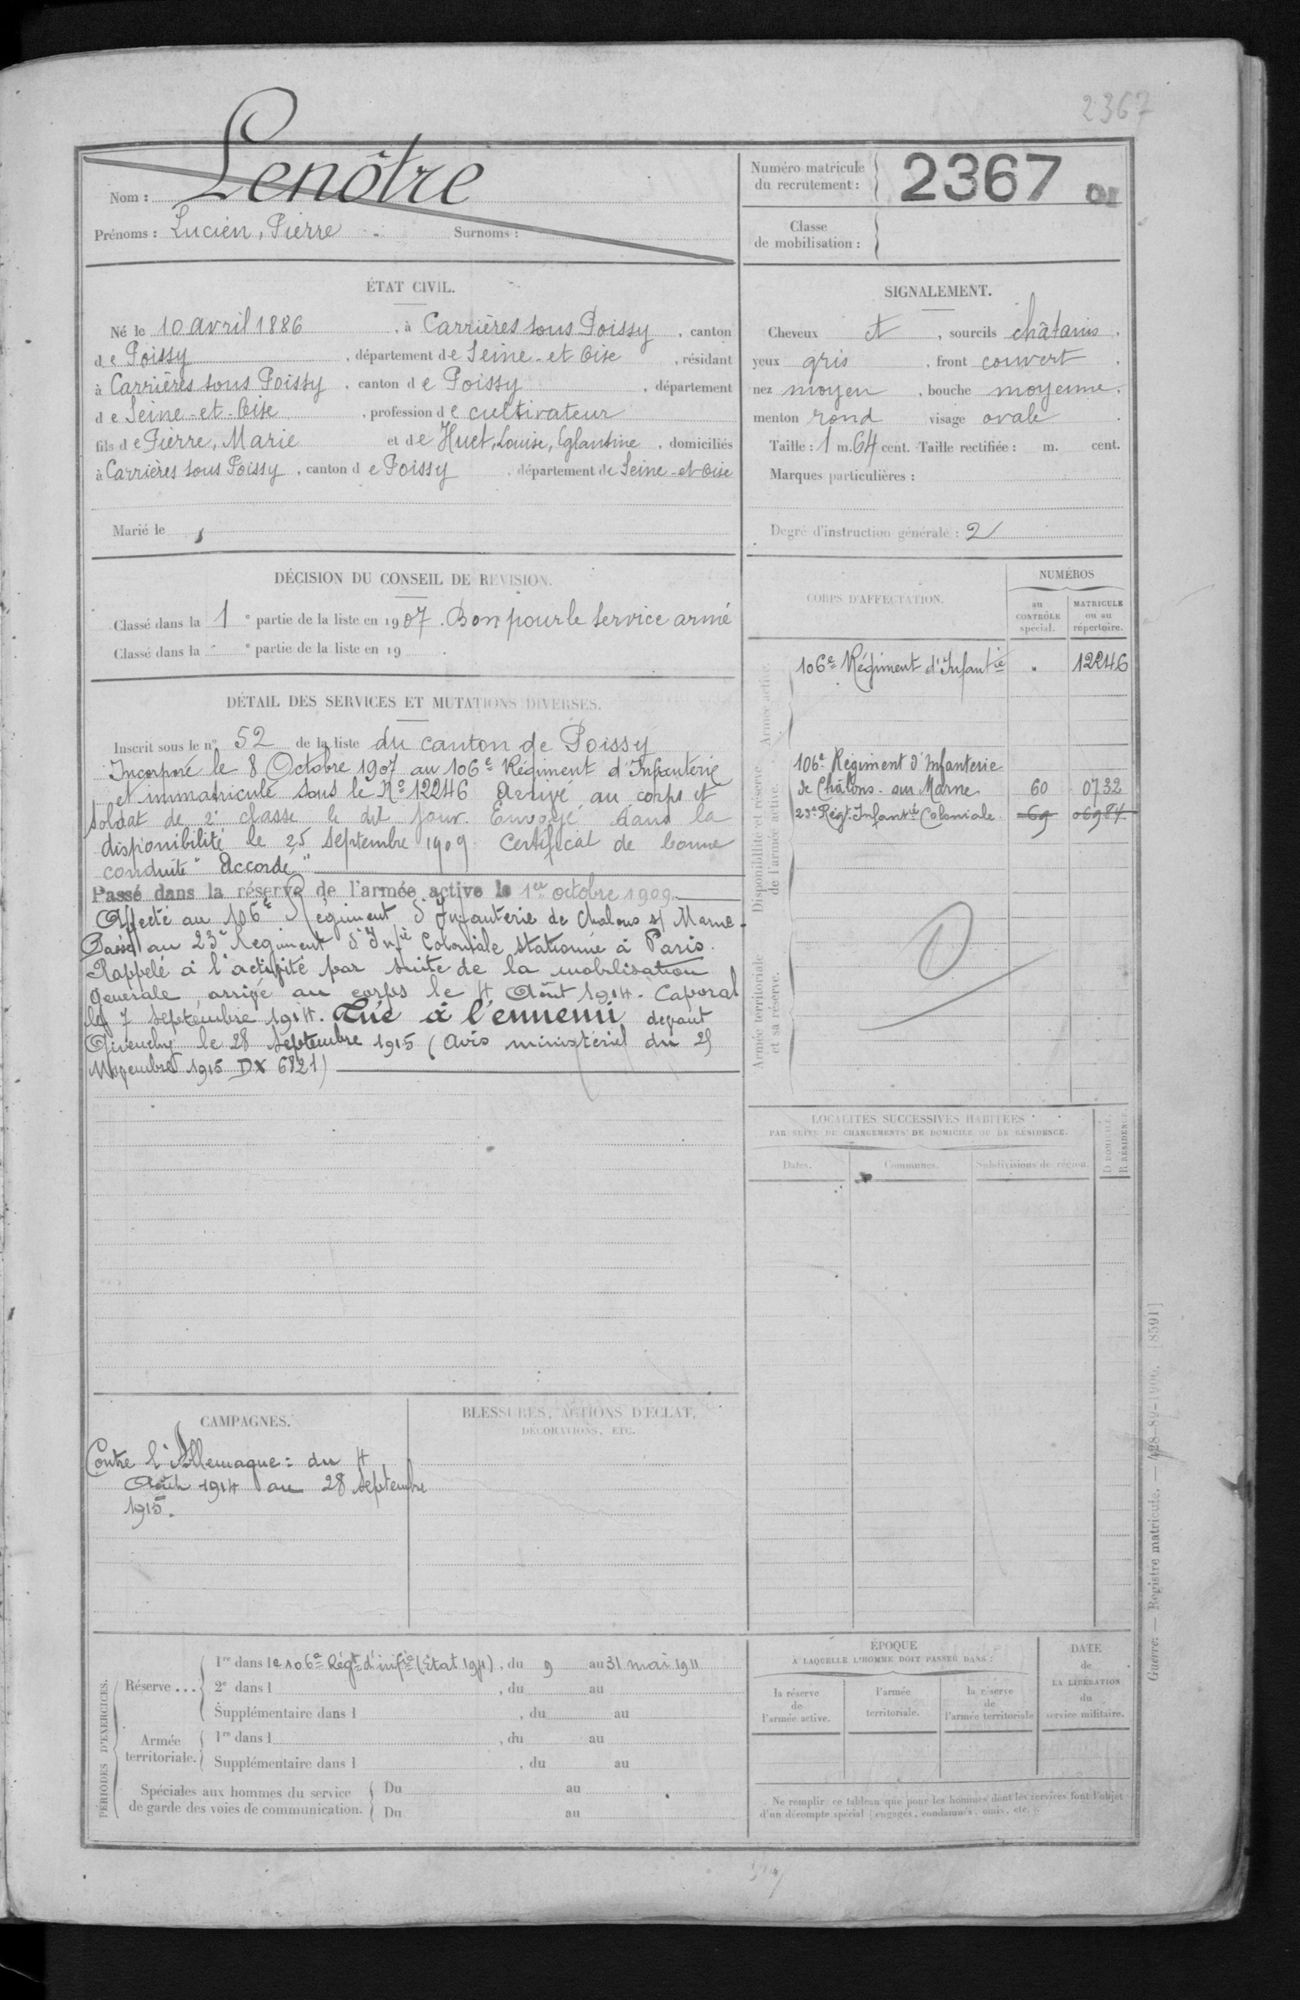 2367
Nom : Lenôtre
Prénoms : Lucien, Pierre Surnoms :
Numéro matricule
du recrutement : 2367
Classe
de mobilisation :
ÉTAT CIVIL.
Né le 10 avril 1886, à Carrières sous Poissy, canton
de Poissy, département de Seine-et-Oise, résidant
à Carrières sous Poissy, canton de Poissy, département
de Seine-et-Oise, profession de cultivateur
fils de Pierre, Marie et de Huet, Louise, Eglantine, domiciliés
à Carrières sous Poissy, canton de Poissy, département de Seine-et-Oise
Marié le
SIGNALEMENT.
Cheveux et, sourcils châtains,
yeux gris, front couvert,
nez moyen, bouche moyenne.
menton rond visage ovale.
Taille : 1 m. 64 cent. Taille rectifiée : m. cent.
Marques particulières :
Degré d'instruction générale : 2
DÉCISION DU CONSEIL DE REVISION.
Classé dans la 1e partie de la liste en 1907. Bon pour le service armé
Classé dans la e partie de la liste en 19
DÉTAIL DES SERVICES ET MUTATIONS DIVERSES.
Inscrit sous le n° 52 de la liste du canton de Poissy
Incorporé le 8 Octobre 1907 au 106e Régiment d'Infanterie
et immatriculé sous le No 12246 Arrivé au corps et
soldat de 2e classe le dit jour. Envoyé dans la
disponibilité le 25 septembre 1909. Certificat de bonne
conduite "Accordé"
Passé dans la réserve de l'armée active le 1er octobre 1909
Affecté au 106e Régiment d'Infanterie de Chalons s/ Marne.
Passé au 23e Régiment d'Infie Coloniale stationné à Paris.
Rappelé à l'activité par suite de la mobilisation
générale arrivé au corps le 4 Août 1914. Caporal
le 7 septembre 1914. Tué à l'ennemi devant
Givenchy le 28 septembre 1915 (Avis ministériel du 25
Novembre 1915 DX 6821)
CORPS D'AFFECTATION.
NUMÉROS
au
CONTRÔLE
spécial.
MATRICULE
ou au
répertoire.
Armée active.
106e Régiment d'Infantie 12246
Disponibilité et réserve
de l'armée active.
106e Régiment d'Infanterie
de Châlons-sur-Marne 60 0732
23e Régt Infantie Coloniale 69 06984
Armée territoriale
et sa réserve.
LOCALITÉS SUCCESSIVES HABITÉES
PAR SUITE DE CHANGEMENTS DE DOMICILE OU DE RÉSIDENCE.
Dates. Communes. Subdivisions de région. D DOMICILE
R RÉSIDENCE
CAMPAGNES.
Contre l'Allemagne : du 4
Août 1914 au 28 septembre
1915.
BLESSURES, ACTIONS D'ÉCLAT,
DÉCORATIONS, ETC.
PÉRIODES D'EXERCICES.
Réserve ...
1re dans le 106e Régt d'infie (Etat 1911), du 9 au 31 mai 1911
2e dans l , du au
Supplémentaire dans l , du au
Armée
territoriale.
1re dans l , du au
Supplémentaire dans l , du au
Spéciales aux hommes du service
de garde des voies de communication.
Du au
Du au
ÉPOQUE
À LAQUELLE L'HOMME DOIT PASSER DANS :
la réserve
de
l'armée active.
l'armée
territoriale.
la réserve
de
l'armée territoriale
DATE
de
LA LIBÉRATION
du
service militaire.
Ne remplir ce tableau que pour les hommes dont les services font l'objet
d'un décompte spécial (engagés, condamnés, omis, etc.).
Guerre. — Registre matricule. — 428-89-1906. [8591]